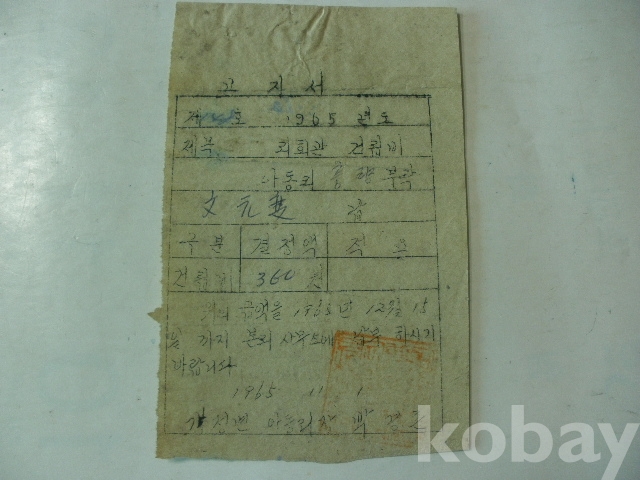 고 지 서
제 호 1965 년도
제목 리회관 건립비
마동리 부락
文 元 楚
구 분 결정액 적 요
건립비 360 원
위의 금액을 1965년 12월 15
일 까지 본리 사무소에 납부 하시기
바랍니다
1965 11 1
성면 마동리장 박
kobay